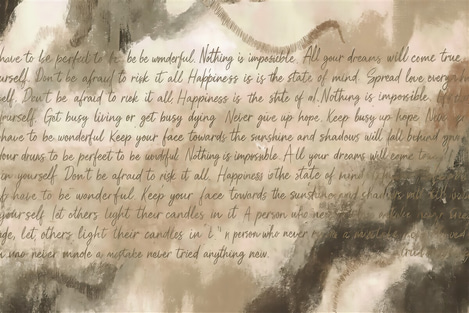 have to be perfect to be be be wonderful. Nothing is impossible. All your dreams will come true
urself. Don't be afraid to risk it all Happiness is is the state of mind. Spread love every
elf. Don't be afraid to risk it all Happiness is the state of al. Nothing is impossible.
yourself. Get busy living or get busy dying. Never give up hope. Keep busy up hope.
have to be wonderful Keep your face towards the sunshine and shadows will fall behind you
to be perfect to be Nothing is impossible. All your dreams will come
in yourself. Don't be afraid to risk it all. Happiness the state of mind
have to be wonderful. Keep your face towards the sunshine and shadows will
yourself let others light their candles in it A person who
let others light their candles in person who never a mistake
never made a mistake never tried anything new.